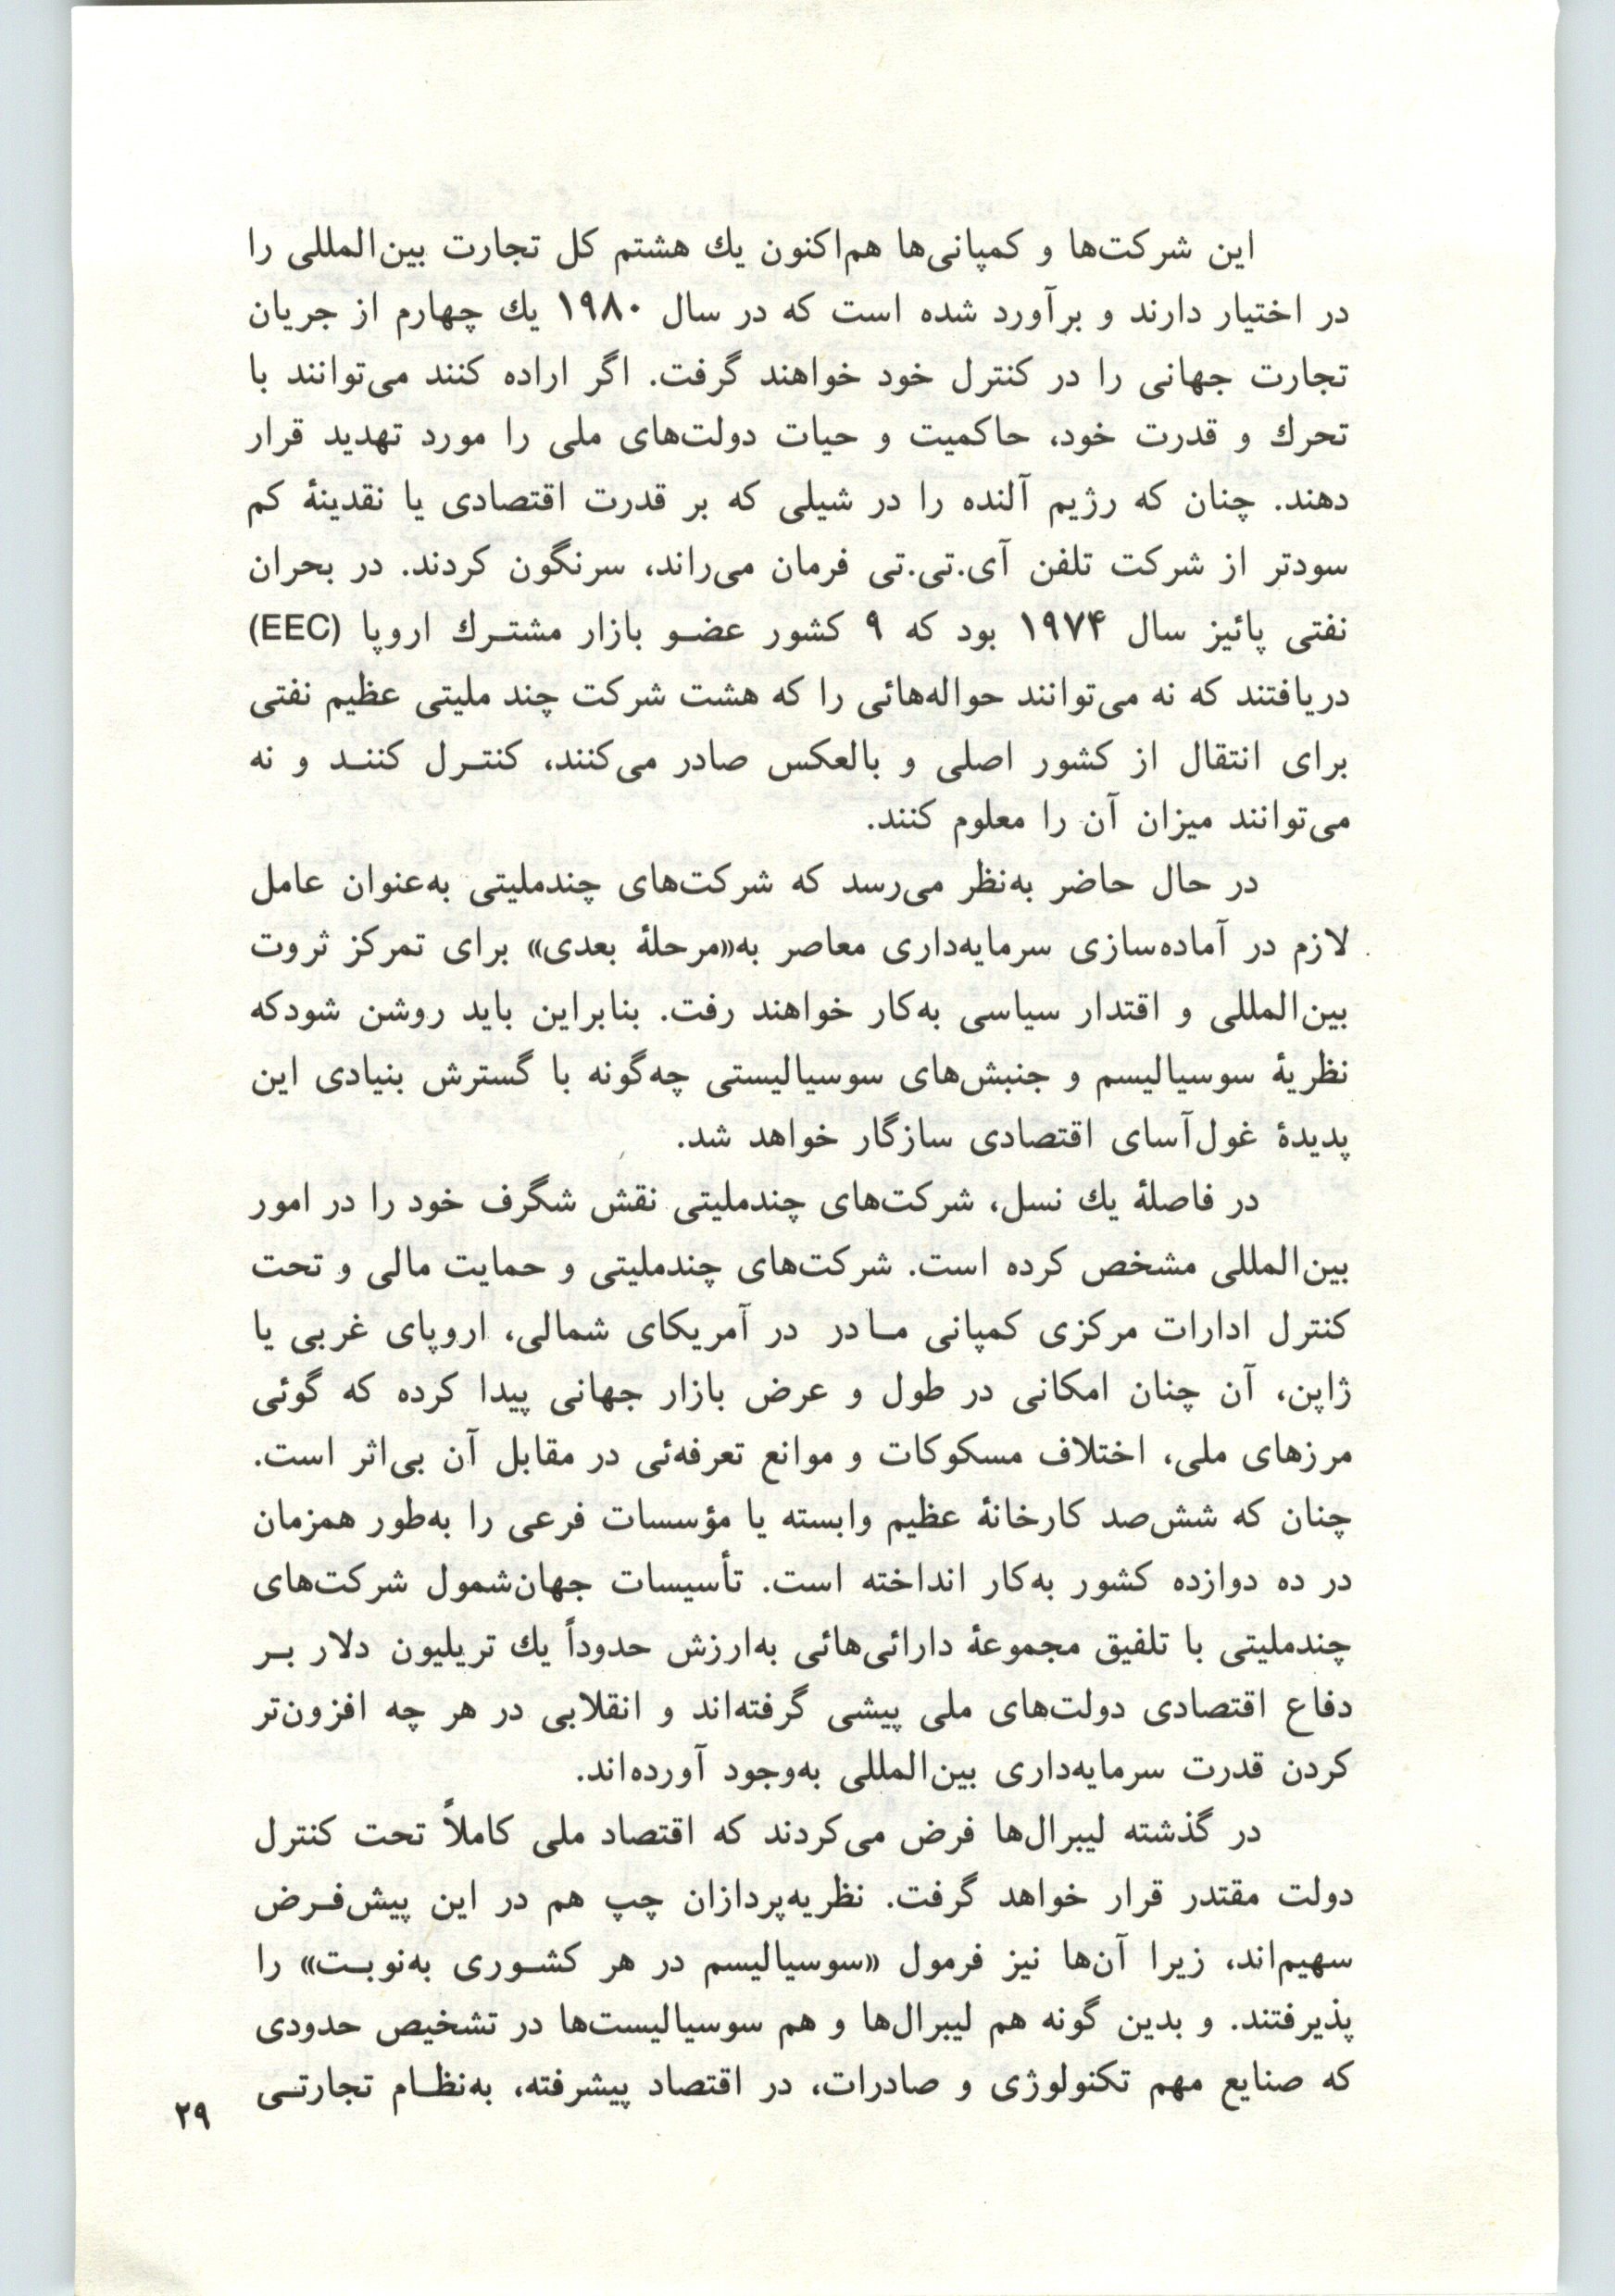 این شرکت‌ها و کمپانی‌ها هم‌اکنون یك هشتم کل تجارت بین‌المللی را
در اختیار دارند و برآورد شده است که در سال ۱۹۸۰ یك چهارم از جریان
تجارت جهانی را در کنترل خود خواهند گرفت. اگر اراده کنند می‌توانند با
تحرك و قدرت خود، حاکمیت و حیات دولت‌های ملی را مورد تهدید قرار
دهند. چنان که رژیم آلنده را در شیلی که بر قدرت اقتصادی یا نقدینهٔ کم
سودتر از شرکت تلفن آی.تی.تی فرمان می‌راند، سرنگون کردند. در بحران
نفتی پائیز سال ۱۹۷۴ بود که ۹ کشور عضو بازار مشترك اروپا (EEC)
دریافتند که نه می‌توانند حواله‌هائی را که هشت شرکت چند ملیتی عظیم نفتی
برای انتقال از کشور اصلی و بالعکس صادر می‌کنند، کنترل کنند و نه
می‌توانند میزان آن را معلوم کنند.
در حال حاضر به‌نظر می‌رسد که شرکت‌های چندملیتی به‌عنوان عامل
لازم در آماده‌سازی سرمایه‌داری معاصر به«مرحلهٔ بعدی» برای تمرکز ثروت
بین‌المللی و اقتدار سیاسی به‌کار خواهند رفت. بنابراین باید روشن شودکه
نظریهٔ سوسیالیسم و جنبش‌های سوسیالیستی چه‌گونه با گسترش بنیادی این
پدیدهٔ غول‌آسای اقتصادی سازگار خواهد شد.
در فاصلهٔ یك نسل، شرکت‌های چندملیتی نقش شگرف خود را در امور
بین‌المللی مشخص کرده است. شرکت‌های چندملیتی و حمایت مالی و تحت
کنترل ادارات مرکزی کمپانی مادر در آمریکای شمالی، اروپای غربی یا
ژاپن، آن چنان امکانی در طول و عرض بازار جهانی پیدا کرده که گوئی
مرزهای ملی، اختلاف مسکوکات و موانع تعرفه‌ئی در مقابل آن بی‌اثر است.
چنان که شش‌صد کارخانهٔ عظیم وابسته یا مؤسسات فرعی را به‌طور همزمان
در ده دوازده کشور به‌کار انداخته است. تأسیسات جهان‌شمول شرکت‌های
چندملیتی با تلفیق مجموعهٔ دارائی‌هائی به‌ارزش حدوداً یك تریلیون دلار بر
دفاع اقتصادی دولت‌های ملی پیشی گرفته‌اند و انقلابی در هر چه افزون‌تر
کردن قدرت سرمایه‌داری بین‌المللی به‌وجود آورده‌اند.
در گذشته لیبرال‌ها فرض می‌کردند که اقتصاد ملی کاملاً تحت کنترل
دولت مقتدر قرار خواهد گرفت. نظریه‌پردازان چپ هم در این پیش‌فرض
سهیم‌اند، زیرا آن‌ها نیز فرمول «سوسیالیسم در هر کشوری به‌نوبت» را
پذیرفتند. و بدین گونه هم لیبرال‌ها و هم سوسیالیست‌ها در تشخیص حدودی
که صنایع مهم تکنولوژی و صادرات، در اقتصاد پیشرفته، به‌نظام تجارتی
۲۹